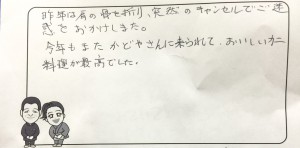 昨年は肩の骨を折り、突然のキャンセルでご迷
惑をおかけしました。
今年もまた かどやさんに来られて、おいしいカニ
料理が最高でした。